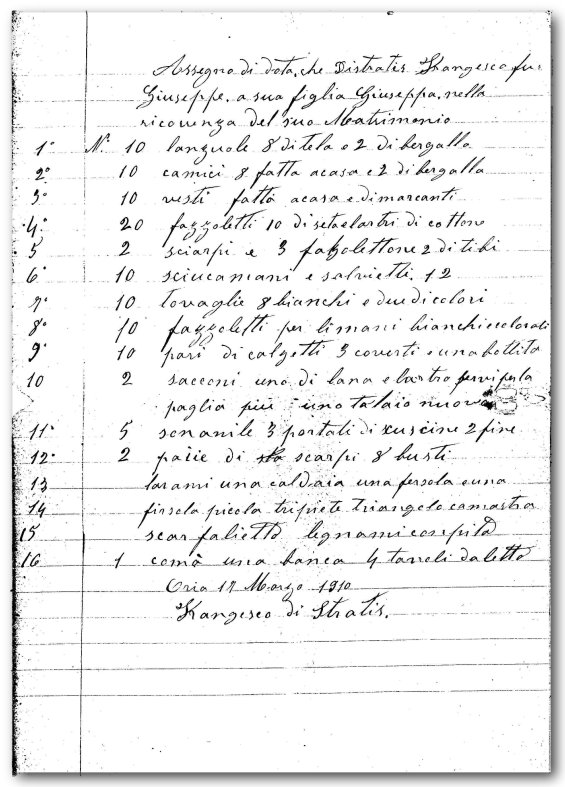 Assegno di dota, che Distratis Francesco fu
Giuseppe, a sua figlia Giuseppa, nella
ricorrenza del suo Matrimonio
1° N.° 10 lanzuole 8 di tela e 2 di bergallo
2° 10 camici 8 fatta acasa e 2 di bergalla
3° 10 vesti fatta acasa e di marcanti
4° 20 fazzoletti 10 di seta e lartri di cottone
5 2 sciarpi e 3 fazzolettone 2 di tibi
6° 10 sciucamani e salvietti 12
7° 10 tovaglie 8 bianchi e due di colori
8° 10 fazzoletti per li mani bianchi e colorati
9° 10 pari di calzetti 3 coverti e una bottita
10 2 sacconi uno di lana e lartro per
paglia più uno talaio nuovo
11° 5 senanile 3 portali di 2 fine
12° 2 paiie di scarpi 8 busti
13 la rami una caldaia una fersola e una
14 firsola picola tripiete triangolo camastra
15 scarfalietto legnami compito
16 1 comò una banca 4 tavoli da letto
Oria 17 Marzo 1910
Francesco di Stratis.